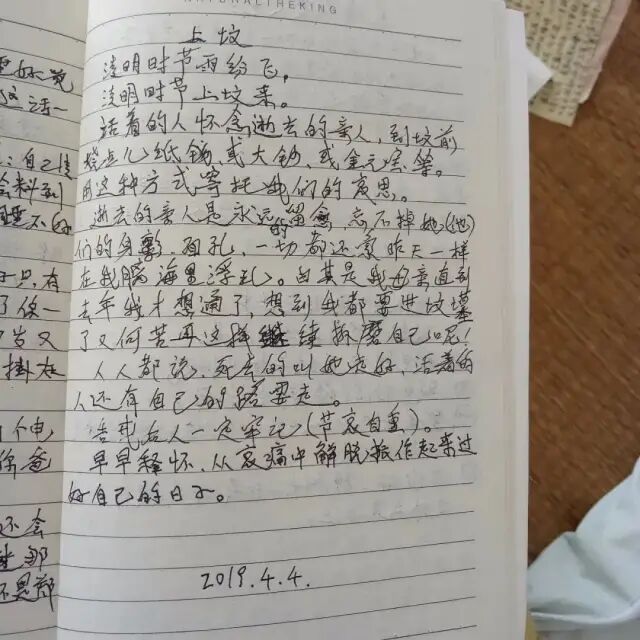 NATURAL TREKING
上坟
清明时节雨纷飞。
清明时节上坟来。
活着的人怀念逝去的亲人,到坟前
烧点儿纸钱,或大钞,或金元宝等。
用这种方式寄托我们的哀思。
逝去的亲人是永远的留念,忘不掉她(他)
们的身影、面孔,一切都还象昨天一样
在我脑海里浮现。尤其是我母亲直到
去年我才想通了,想到我都要进坟墓
了又何苦再这样继续折磨自己呢!
人人都说,死去的叫她走好,活着的
人还有自己的路要走。
告戒后人一定牢记(节哀自重)。
早早释怀,从哀痛中解脱振作起来过
好自己的日子。
2019.4.4.
这话一
:自己
料到
只有
了你一
岁又
掛在
爸
还会
那